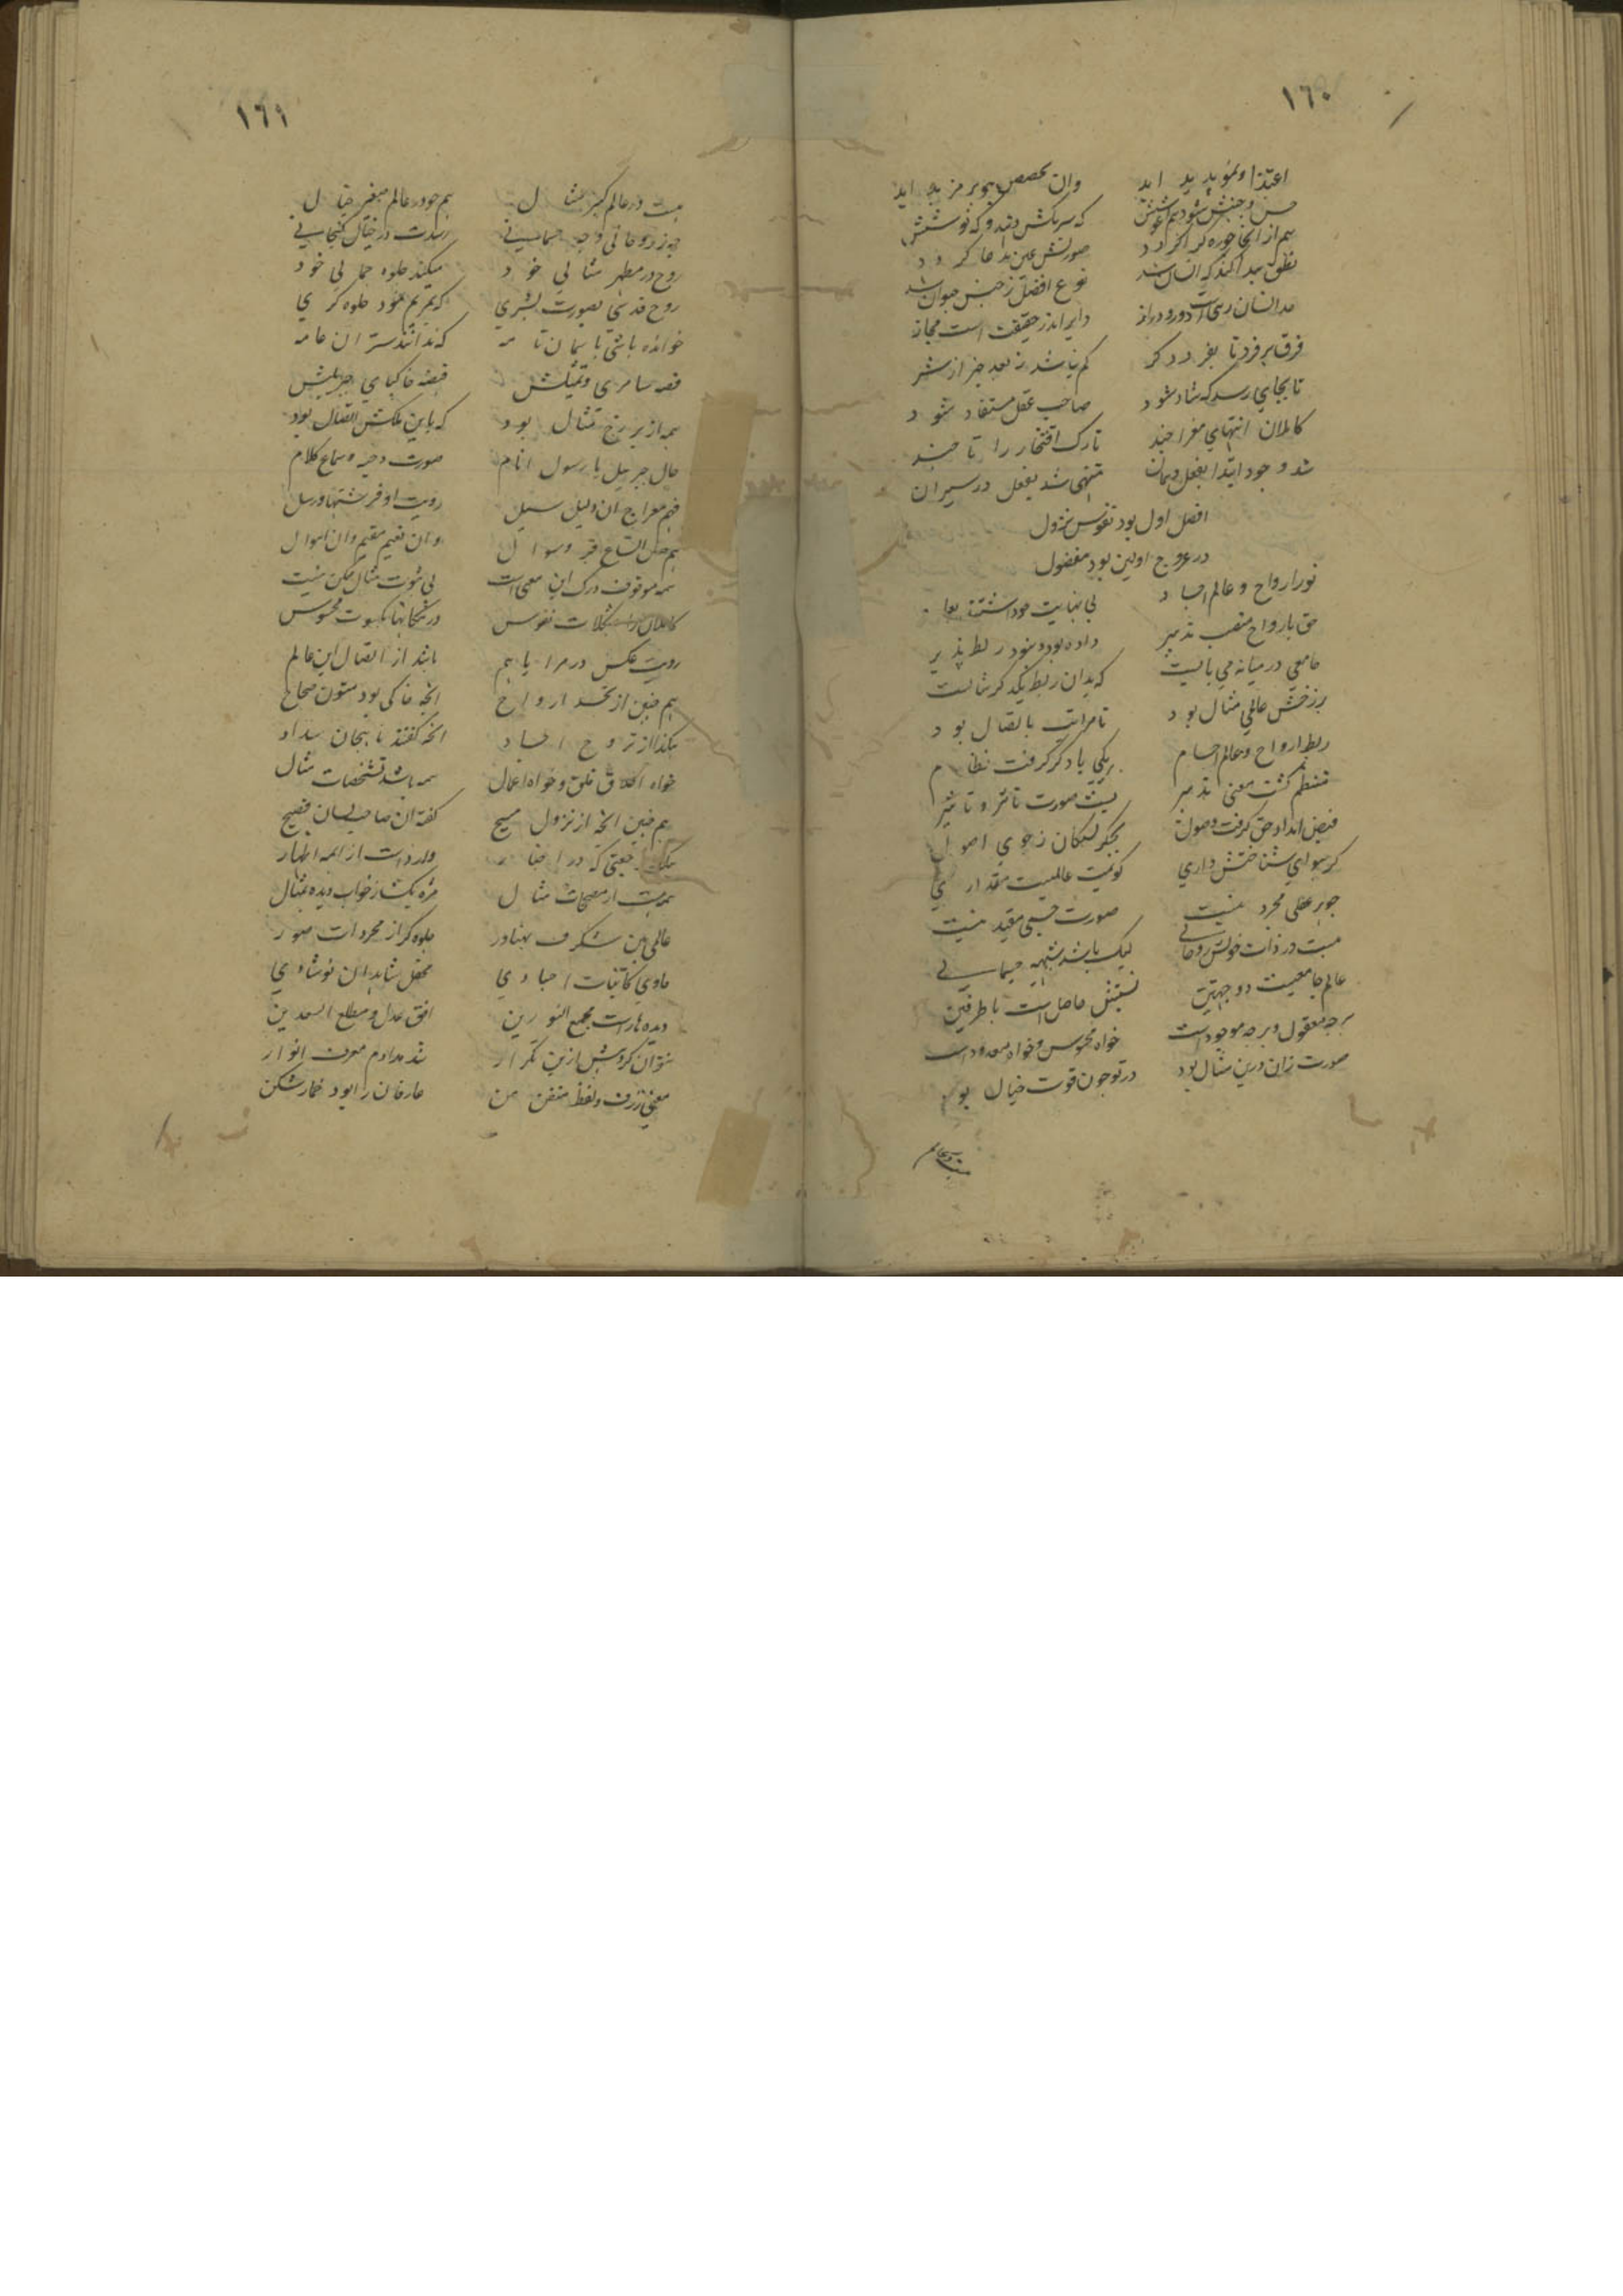 ١٦٠
اعتذا و نمو پدید آید وان تخصص بجوهر مزید آید
حس و جنبش شود هم آغوشش که سر بکش دهد و که نوشش
هم از انجا چوره کرا کردد صورتش عین مدعا کردد
نطق پیدا کند که انسان شد نوع افضل ز جنس حیوان شد
انسان رهی است دور و دراز دایر اندر حقیقت است مجاز
فرق هر فرد تا بفرد دکر کم نباشد ز بعد خیر از شر
تا بجایی رسد که شاد شود صاحب عقل مستفاد شود
کاملان انتهای معراجند تارک افتخار را تاجند
شد وجود ابتدا بعقل و همان منتهی شد بعقل در سیران
افضل اول بود نفوس نزول
در عروج اولین بود مفضول
نور ارواح و عالم اجساد بی نهایت خود داشتند بعاد
حق بارواح منصب تدبیر داده بود و نبود ربط پذیر
جامعی در میانه می بایست که بدان ربط یکدکر شایست
برزخش عالمی مثال بود تا مراتب باتصال بود
ربط ارواح و عالم اجسام بر یکی یا دکر کرفت نظام
منتظم کشت معنی تدبیر بست صورت تاثر و تاثیر
فیض امداد حق کرفت وصول بجکر تشنکان ز جوی اصول
کر هوای شناختش داری کویمت عالمیست مقداری
جوهر عقلی مجرد نیست صورت جسمی مقید نیست
هست در ذات خویش روحانی لیک باشد شبیه جسمانی
عالم جامعیت دو جهتین نسبتش حاصل است با طرفین
هر چه معقول و هر چه موجود است خواه محسوس و خواه معدود است
صورت زان درین مثال بود در تو چون قوت خیال بود
١٦١
هست در عالم کبیر مثال هم چو در عالم صغیر خیال
چه ز روحانی و چه جسمانی رسدت در خیال کنجایی
روح در مظهر مثالی خود میکند جلوه جمالی خود
روح قدسی بصورت بشری کریمریم نمود جلوه کری
خوانده باشی باسمان نامه که ندانند سر ان عامه
قصه سامری و تمثیلش قبضه خاکپای جبریلش
همه از برزخ مثال بود که باین ملکش اتصال بود
حال جبریل با رسول انام صورت دحیه و سماع کلام
فهم معراج ان دلیل سبیل رویت او فرشتها و رسل
هم اتساع قبر و سوال وان نعیم مقیم وان اهوال
همه موقوف درک این معنی است بی ثبوت مثال ممکن نیست
کاملان را مشکلات نفوس در مکانها بکسوت محسوس
رویت عکس در مرایا هم باشد از اتصال این عالم
هم چنین از تجسد ارواح انچه حاکی بود متون صحاح
هکذا از تروح اجساد انچه کفتند تا بجان بیداد
خواه اخلاق خلق و خواه اعمال همه باشد تشخصات مثال
هم چنین انچه از نزول مسیح کفته ان صاحب لسان فصیح
هکذا رجعتی که در اخبار وارد است از ایمه اطهار
همه هست از مصححات مثال مژه بکشا ز خواب دیده بمال
عالمی بین شکرف پهناور جلوه کر از مجردات صور
حاوی کاینات اجبادی محفل شاهدان نوشادی
دیده هارا است مجمع النورین افق عدل و مطلع السعدین
نتوان کرد بیش ازین تکرار شد مدادم معرف انوار
معنی ژرف و لفظ متقن من عارفان را بود خمارشکن